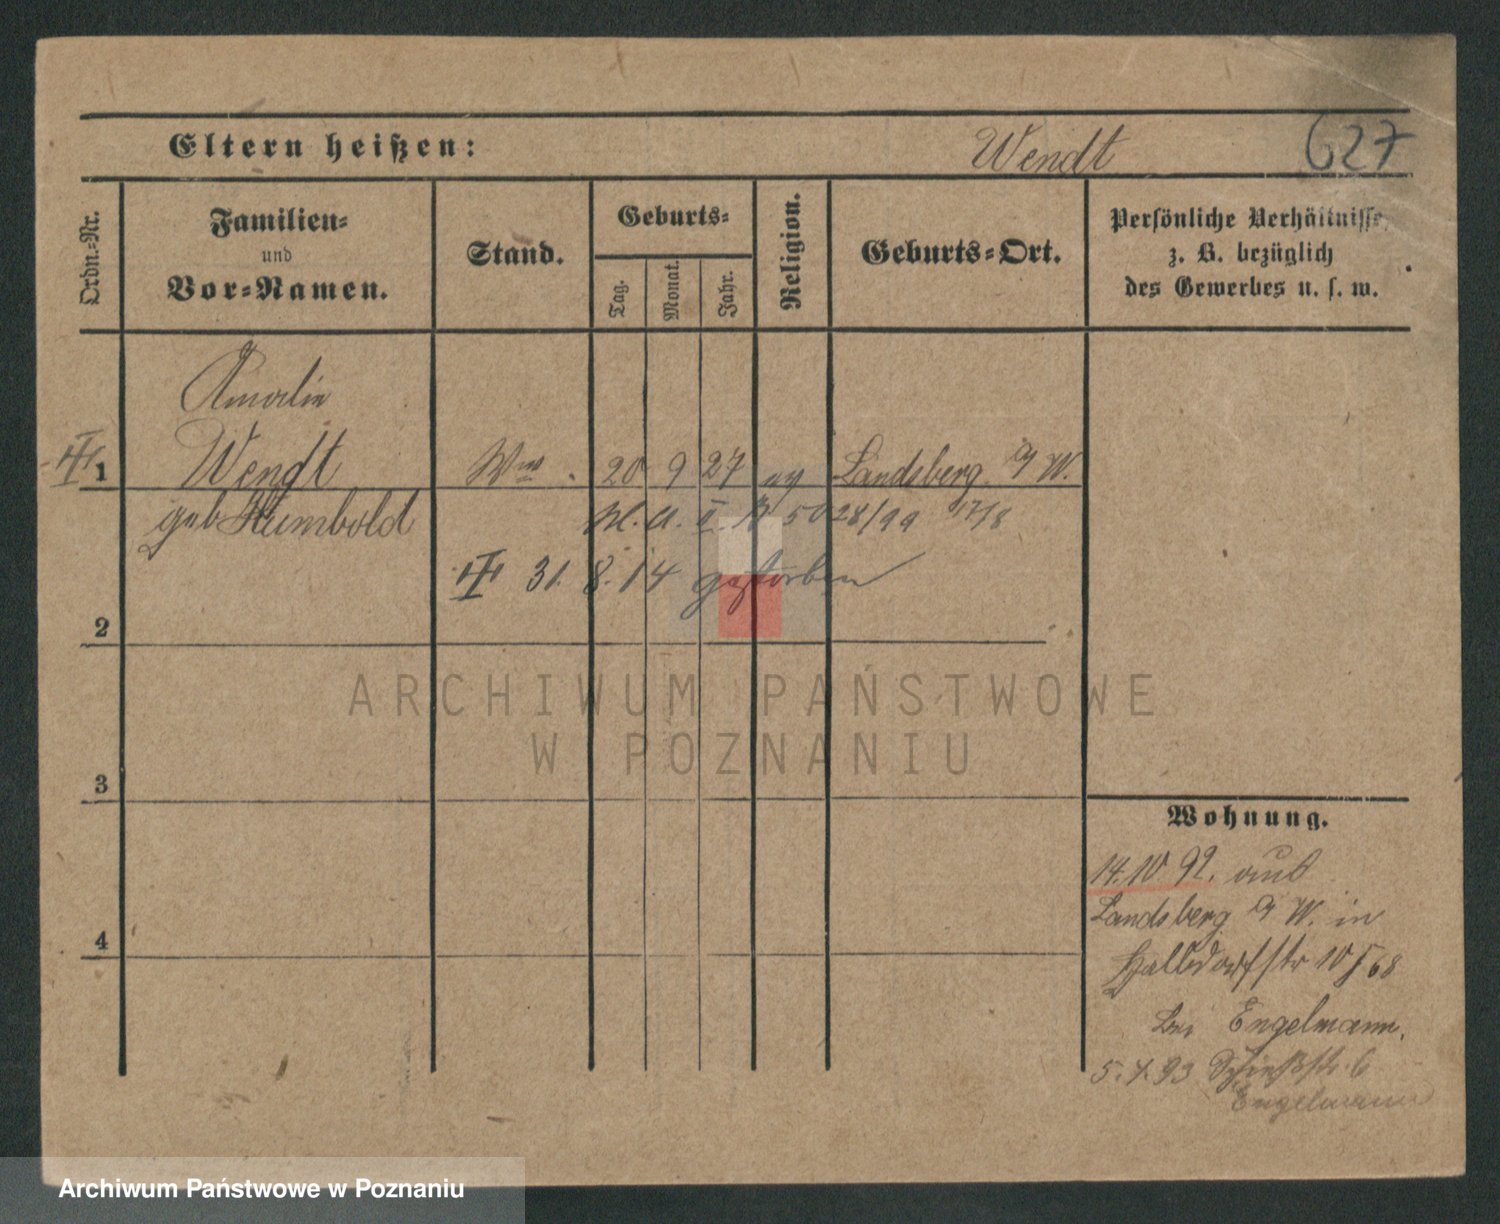 627
Eltern heißen: Wendt
Ordn.-Nr.
Familien-
und
Vor-Namen.
Stand.
Geburts-
Tag.
Monat.
Jahr.
Religion.
Geburts-Ort.
Persönliche Verhältnisse,
z. B. bezüglich
des Gewerbes u. s. w.
Amalie
1 Wendt Ww. 20 9 27 ev Landsberg a/W.
geb Humbold 5028/99 17/8
31. 8. 14 gestorben
2
ARCHIWUM PAŃSTWOWE
W POZNANIU
3
Wohnung.
14.10.92. aus
Landsberg a/W. in
Halbdorfstr 10
4
bei Engelmann.
5.4.93 Schießstr. 6
Engelmann
Archiwum Państwowe w Poznaniu